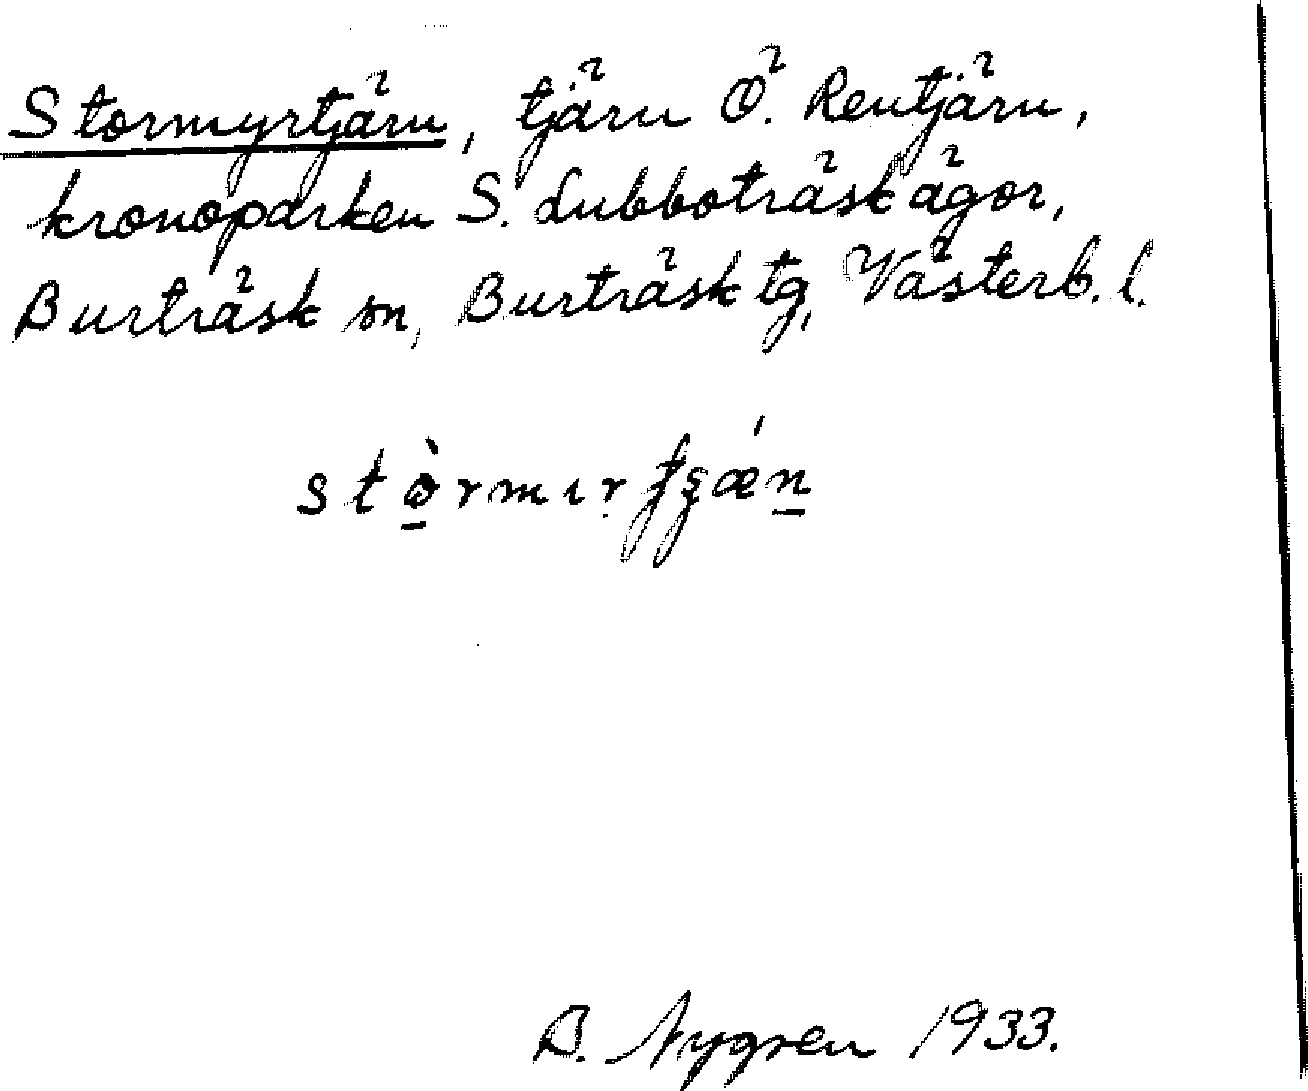 Stormyrtjärn, tjärn Ö. Rentjärn,
kronoparken S. Lubboträsk ägor,
Burträsk sn, Burträsk tg, Västerb. l.
B. Nygren 1933.